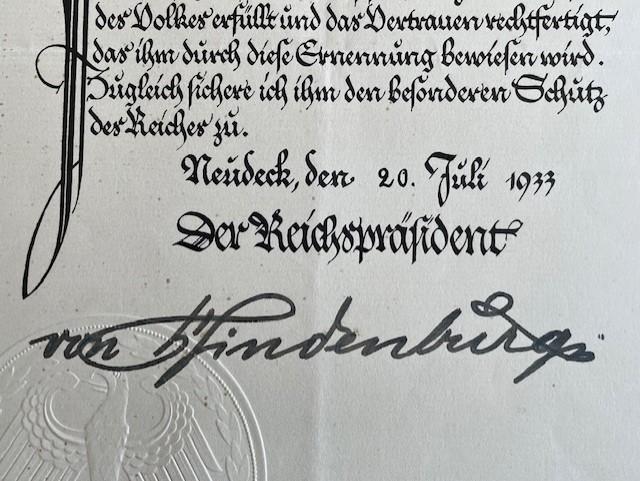 des Volkes erfüllt und das Vertrauen rechtfertigt,
das ihm durch diese Ernennung bewiesen wird.
Zugleich sichere ich ihm den besonderen Schutz
des Reiches zu.
Neudeck, den 20. Juli 1933
Der Reichspräsident
von Hindenburg